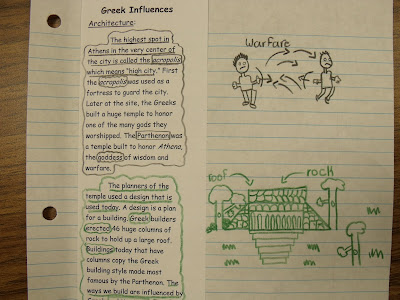 Greek Influences
Architecture:
The highest spot in
Athens in the very center of
the city is called the acropolis
which means "high city." First
the acropolis was used as a
fortress to guard the city.
Later at the site, the Greeks
built a huge temple to honor
one of the many gods they
worshipped. The Parthenon was
a temple built to honor Athena,
the goddess of wisdom and
warfare.
The planners of the
temple used a design that is
used today. A design is a plan
for a building. Greek builders
erected 46 huge columns of
rock to hold up a large roof.
Buildings today that have
columns copy the Greek
building style made most
famous by the Parthenon. The
ways we build are influenced by
warfare
roof
rock